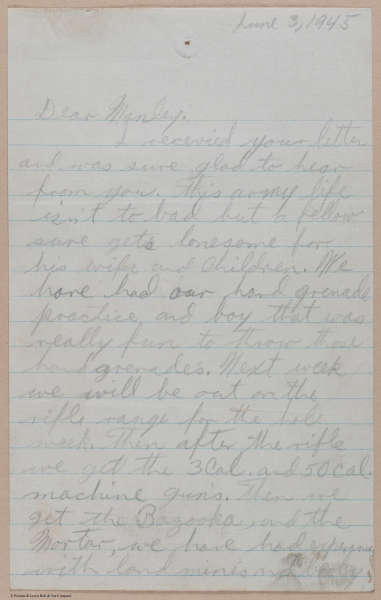 June 3, 1945
Dear Manley:
I recevied your letter
and was sure glad to hear
from you. This army life
isn't to bad but a fellow
sure gets lonesome for
his wife and Children. We
have had our hand grenade
practice and boy that was
really fun to throw those
hand grenades. Next week
we will be out on the
rifle range for the hole
week. Then after the rifle
we get the 3 Cal. and 50 Cal.
machine guns. Then we
get the Bazooka, and the
Mortar, we have had
with land mines and